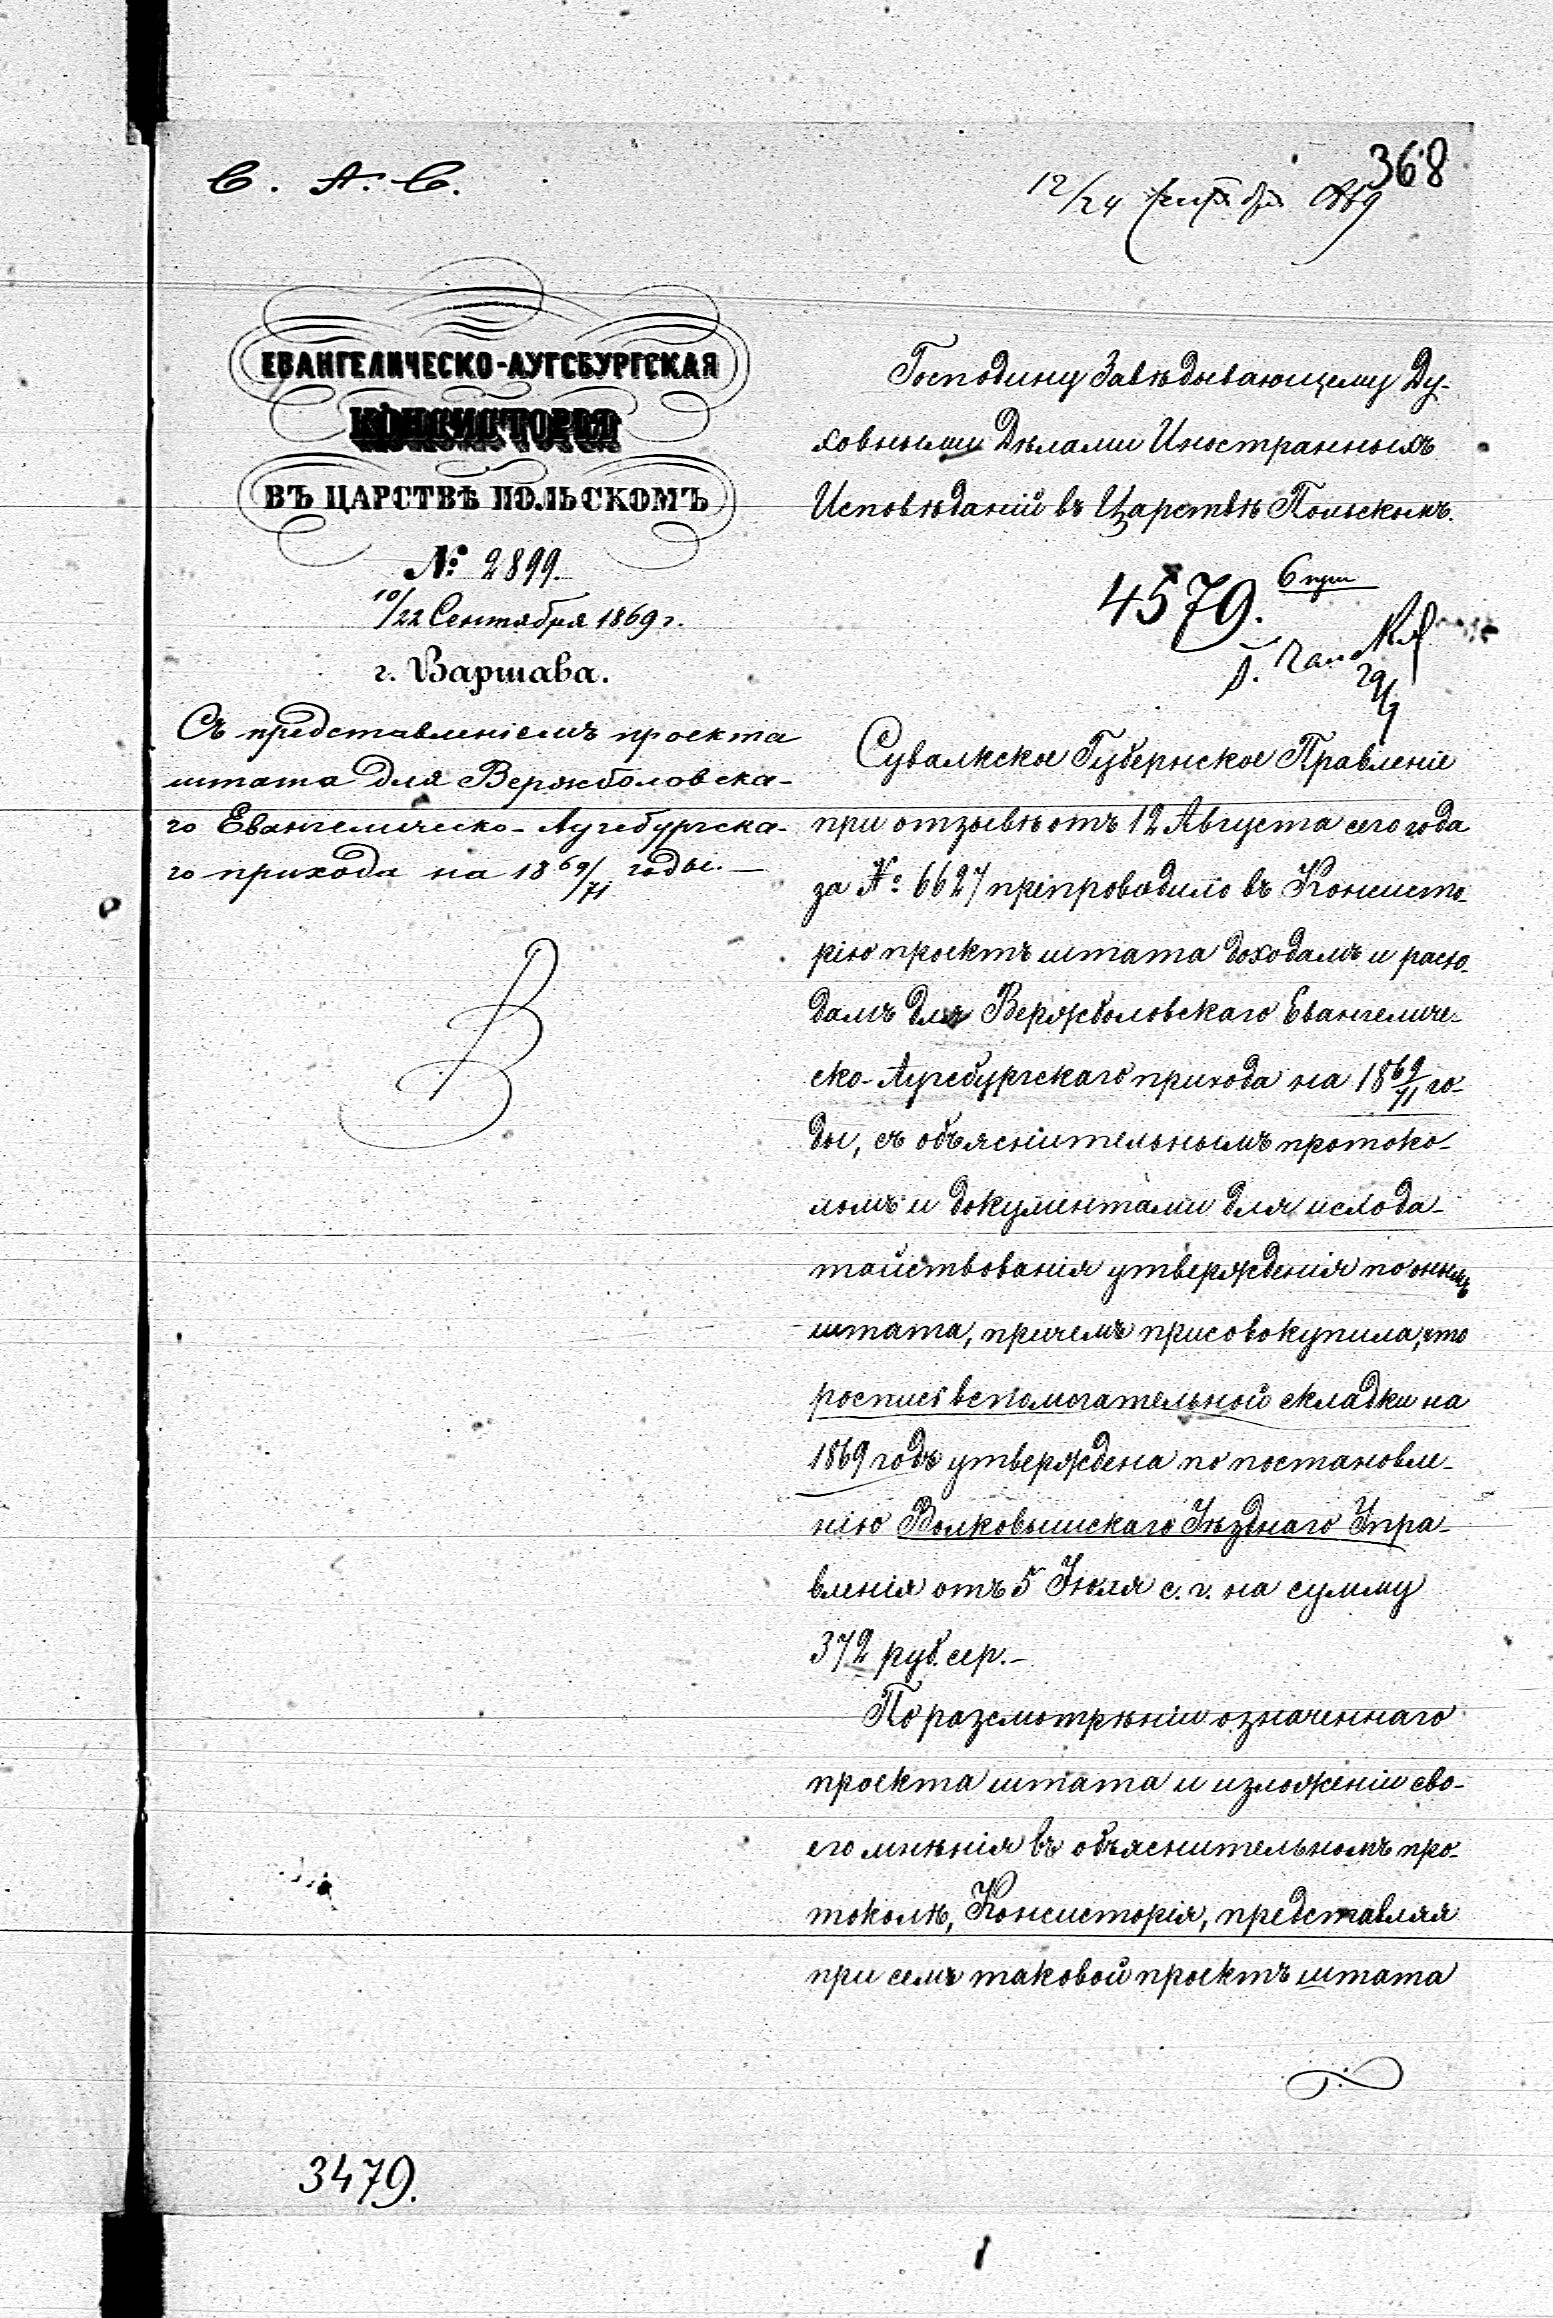 С. А. С.
368
12/24 Сентября 1869
ЕВАНГЕЛИЧЕСКО-АУГСБУРГСКАЯ
КОНСИСТОРІЯ
ВЪ ЦАРСТВѢ ПОЛЬСКОМЪ
№ 2899.
10/22 Сентября 1869 г.
г. Варшава.
Съ представленіемъ проекта
штата для Вержболовска-
го Евангелическо-Аугсбургска-
го прихода на 1869/71 годы.—
3479.
Господину Завѣдывающему Ду-
ховными Дѣлами Иностранныхъ
Исповѣданій въ Царствѣ Польскомъ.
4579.
Сувалкское Губернское Правленіе
при отзывѣ отъ 12 Августа сего года
за № 6627 препроводило въ Консисто-
рію проектъ штата доходамъ и расхо-
дамъ для Вержболовскаго Евангеличе-
ско-Аугсбургскаго прихода на 1869/71 го-
ды, съ объяснительнымъ протоко-
ломъ и документами для исхода-
тайствованія утвержденія по онымъ
штата, причемъ присовокупила, что
роспись вспомогательной складки на
1869 годъ утверждена по постановле-
нію Волковышскаго Уѣзднаго Упра-
вленія отъ 5 Іюля с. г. на сумму
372 руб. сер.—
По разсмотрѣніи означеннаго
проекта штата и изложеніи сво-
его мнѣнія въ объяснительномъ про-
токолѣ, Консисторія, представляя
при семъ таковой проектъ штата